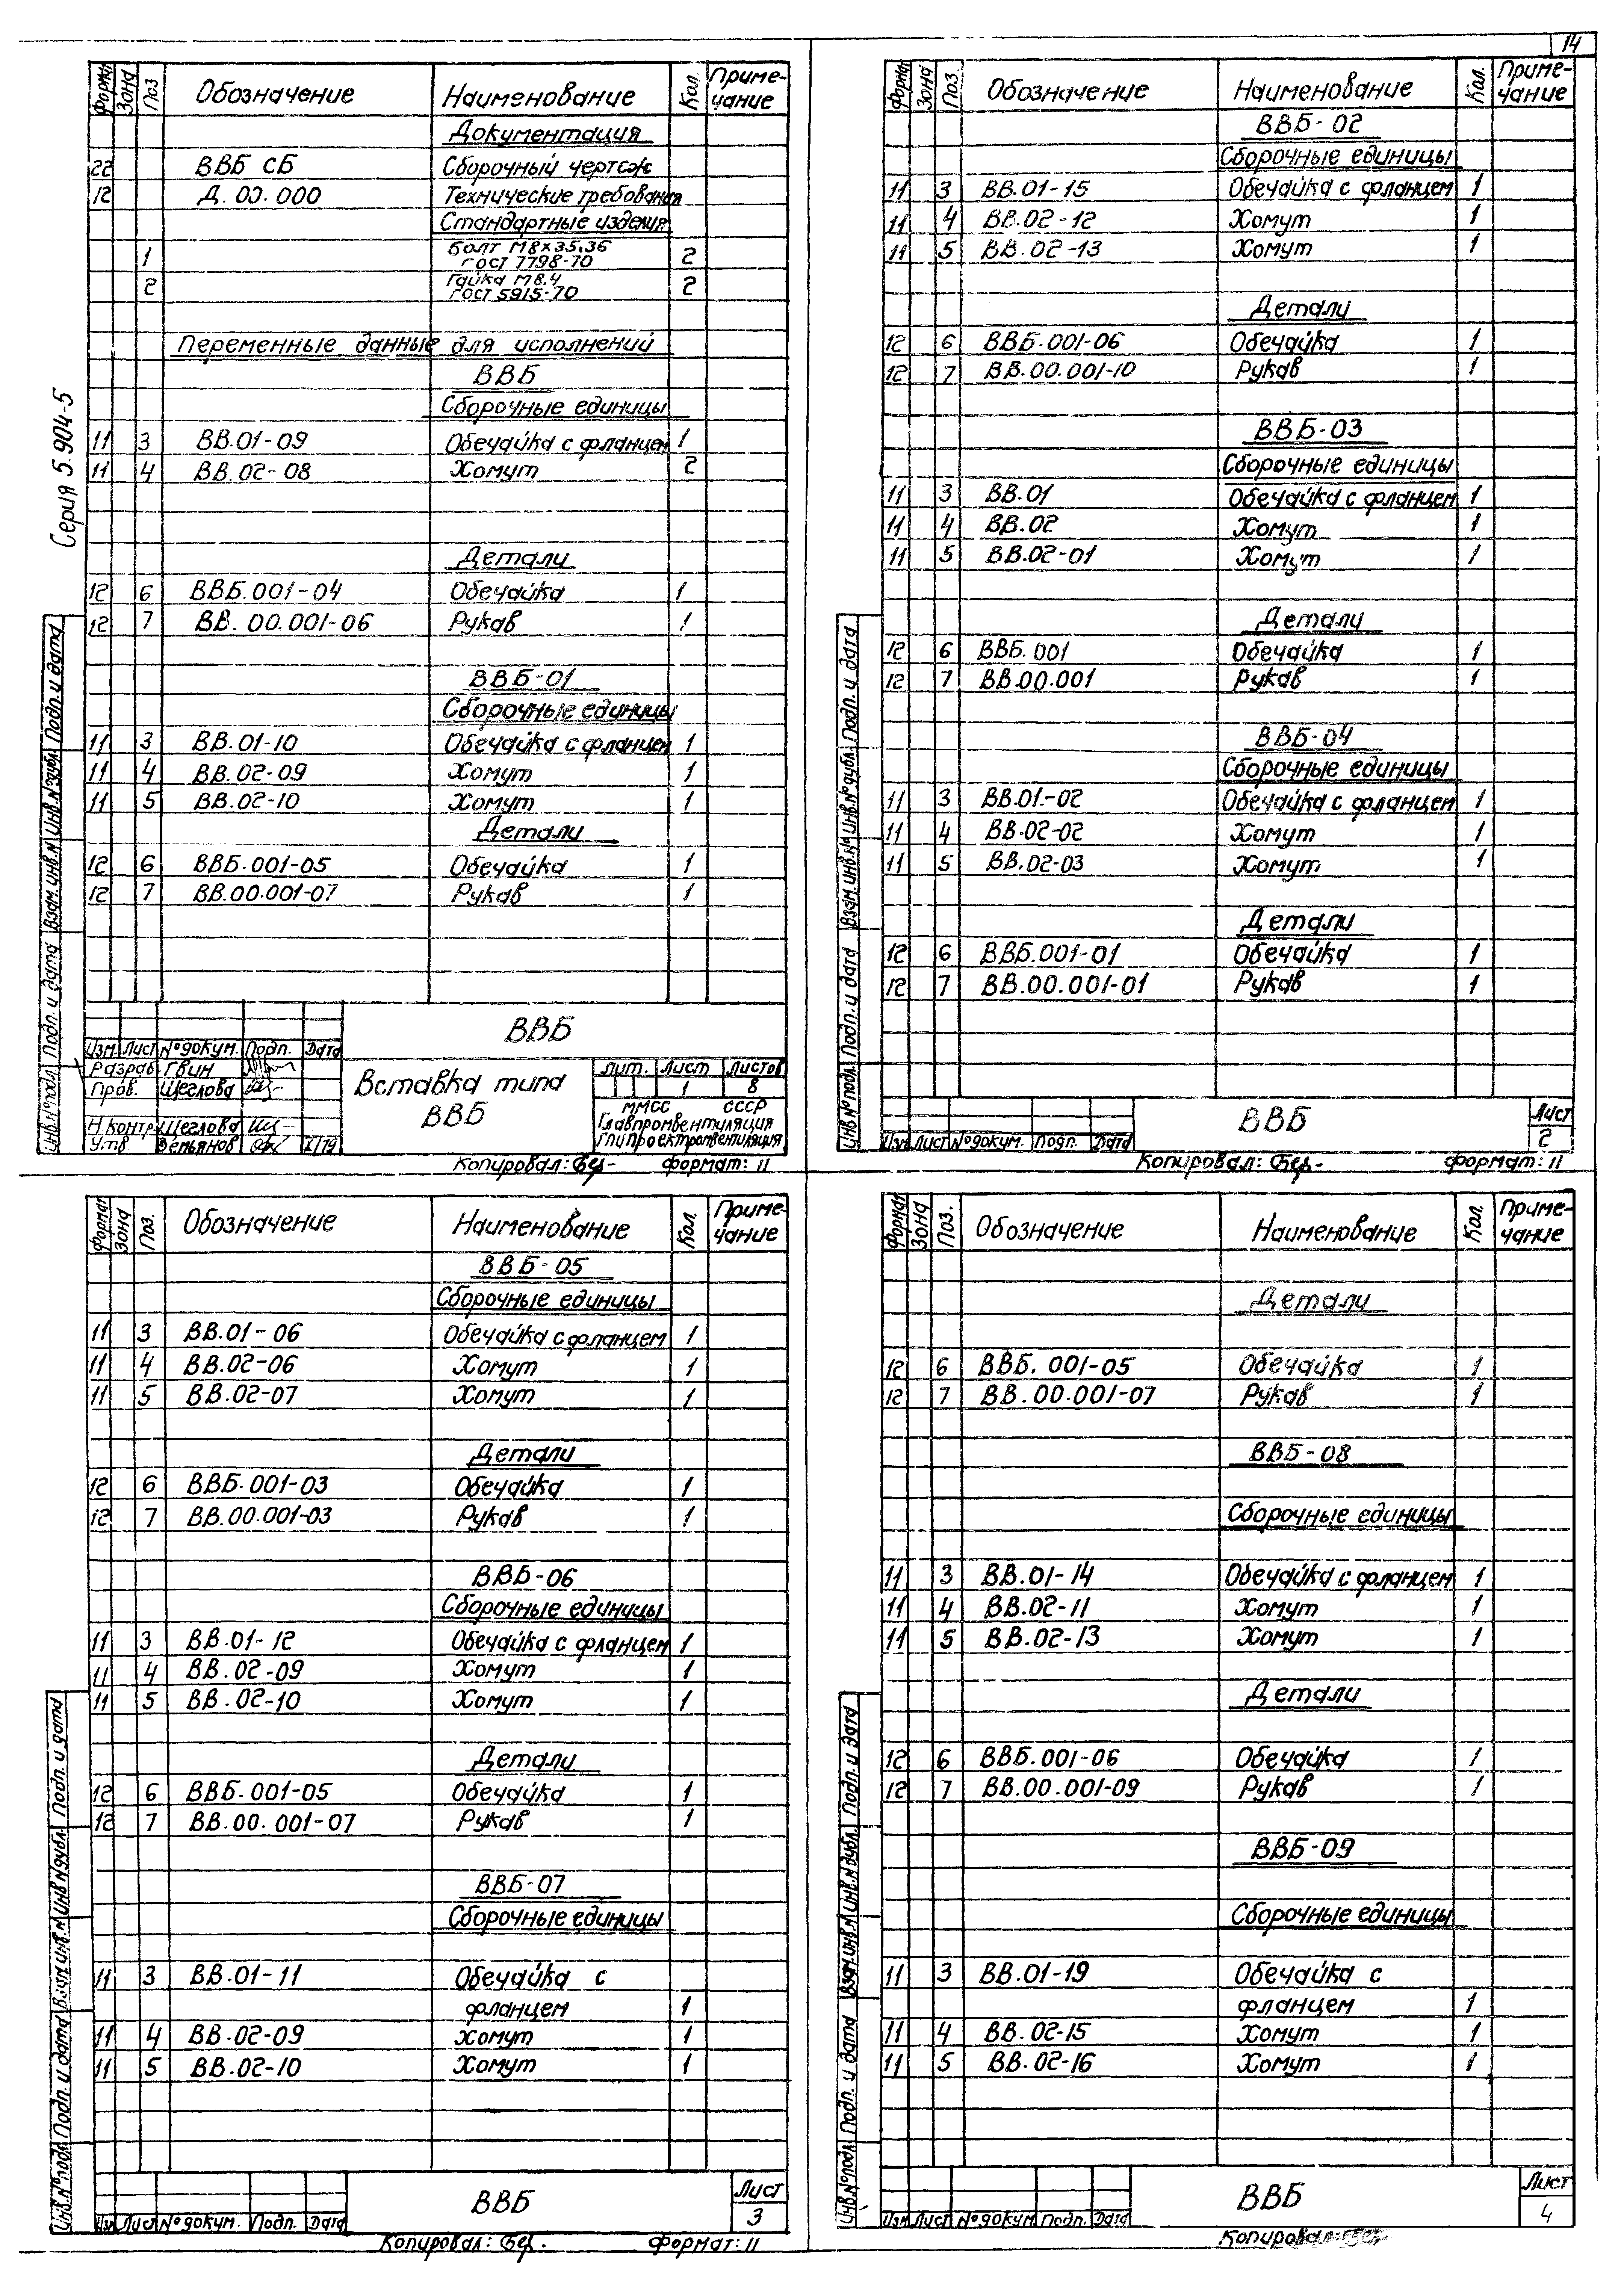 14
Серия 5.904-5
Формат Зона Поз Обозначение Наименование Кол. Приме-
чание
Документация
22 ВВБ СБ Сборочный чертеж
12 Д. 00.000 Технические требования
Стандартные изделия
1 Болт М8×35.36 2
ГОСТ 7798-70
2 Гайка М8.4 2
ГОСТ 5915-70
Переменные данные для исполнений
ВВБ
Сборочные единицы
11 3 ВВ.01-09 Обечайка с фланцем 1
11 4 ВВ.02-08 Хомут 2
Детали
12 6 ВВБ.001-04 Обечайка 1
12 7 ВВ.00.001-06 Рукав 1
ВВБ-01
Сборочные единицы
11 3 ВВ.01-10 Обечайка с фланцем 1
11 4 ВВ.02-09 Хомут 1
11 5 ВВ.02-10 Хомут 1
Детали
12 6 ВВБ.001-05 Обечайка 1
12 7 ВВ.00.001-07 Рукав 1
Инв.№подл. Подп. и дата Взам.инв.№ Инв.№дубл. Подп. и дата
ВВБ
Изм. Лист №докум. Подп. Дата
Разраб. Гвин
Пров. Щеглова
Н.контр. Щеглова
Утв.
Вставка типа
ВВБ
Лит. Лист Листов
1 8
ММСС СССР
Главпромвентиляция
ГПИ Проектпромвентиляция
Копировал: Бер- Формат: 11
Формат Зона Поз. Обозначение Наименование Кол. Приме-
чание
ВВБ-02
Сборочные единицы
11 3 ВВ.01-15 Обечайка с фланцем 1
11 4 ВВ.02-12 Хомут 1
11 5 ВВ.02-13 Хомут 1
Детали
12 6 ВВБ.001-06 Обечайка 1
12 7 ВВ.00.001-10 Рукав 1
ВВБ-03
Сборочные единицы
11 3 ВВ.01 Обечайка с фланцем 1
11 4 ВВ.02 Хомут 1
11 5 ВВ.02-01 Хомут 1
Детали
12 6 ВВБ.001 Обечайка 1
12 7 ВВ.00.001 Рукав 1
ВВБ-04
Сборочные единицы
11 3 ВВ.01-02 Обечайка с фланцем 1
11 4 ВВ.02-02 Хомут 1
11 5 ВВ.02-03 Хомут 1
Детали
12 6 ВВБ.001-01 Обечайка 1
12 7 ВВ.00.001-01 Рукав 1
Инв.№подл. Подп. и дата Взам.инв.№ Инв.№дубл. Подп. и дата
Изм Лист №докум. Подп. Дата
ВВБ
Лист
2
Копировал: Бер- Формат: 11
Формат Зона Поз. Обозначение Наименование Кол. Приме-
чание
ВВБ-05
Сборочные единицы
11 3 ВВ.01-06 Обечайка с фланцем 1
11 4 ВВ.02-06 Хомут 1
11 5 ВВ.02-07 Хомут 1
Детали
12 6 ВВБ.001-03 Обечайка 1
12 7 ВВ.00.001-03 Рукав 1
ВВБ-06
Сборочные единицы
11 3 ВВ.01-12 Обечайка с фланцем 1
11 4 ВВ.02-09 Хомут 1
11 5 ВВ.02-10 Хомут 1
Детали
12 6 ВВБ.001-05 Обечайка 1
12 7 ВВ.00.001-07 Рукав 1
ВВБ-07
Сборочные единицы
11 3 ВВ.01-11 Обечайка с
фланцем 1
11 4 ВВ.02-09 Хомут 1
11 5 ВВ.02-10 Хомут 1
Инв.№подл. Подп. и дата Взам.инв.№ Инв.№дубл. Подп. и дата
Изм Лист №докум. Подп. Дата
ВВБ
Лист
3
Копировал: Бер. Формат: 11
Формат Зона Поз. Обозначение Наименование Кол. Приме-
чание
Детали
12 6 ВВБ.001-05 Обечайка 1
12 7 ВВ.00.001-07 Рукав 1
ВВБ-08
Сборочные единицы
11 3 ВВ.01-14 Обечайка с фланцем 1
11 4 ВВ.02-11 Хомут 1
11 5 ВВ.02-13 Хомут 1
Детали
12 6 ВВБ.001-06 Обечайка 1
12 7 ВВ.00.001-09 Рукав 1
ВВБ-09
Сборочные единицы
11 3 ВВ.01-19 Обечайка с
фланцем 1
11 4 ВВ.02-15 Хомут 1
11 5 ВВ.02-16 Хомут 1
Инв.№подл. Подп. и дата Взам.инв.№ Инв.№дубл. Подп. и дата
Изм Лист №докум Подп. Дата
ВВБ
Лист
4
Копировал: